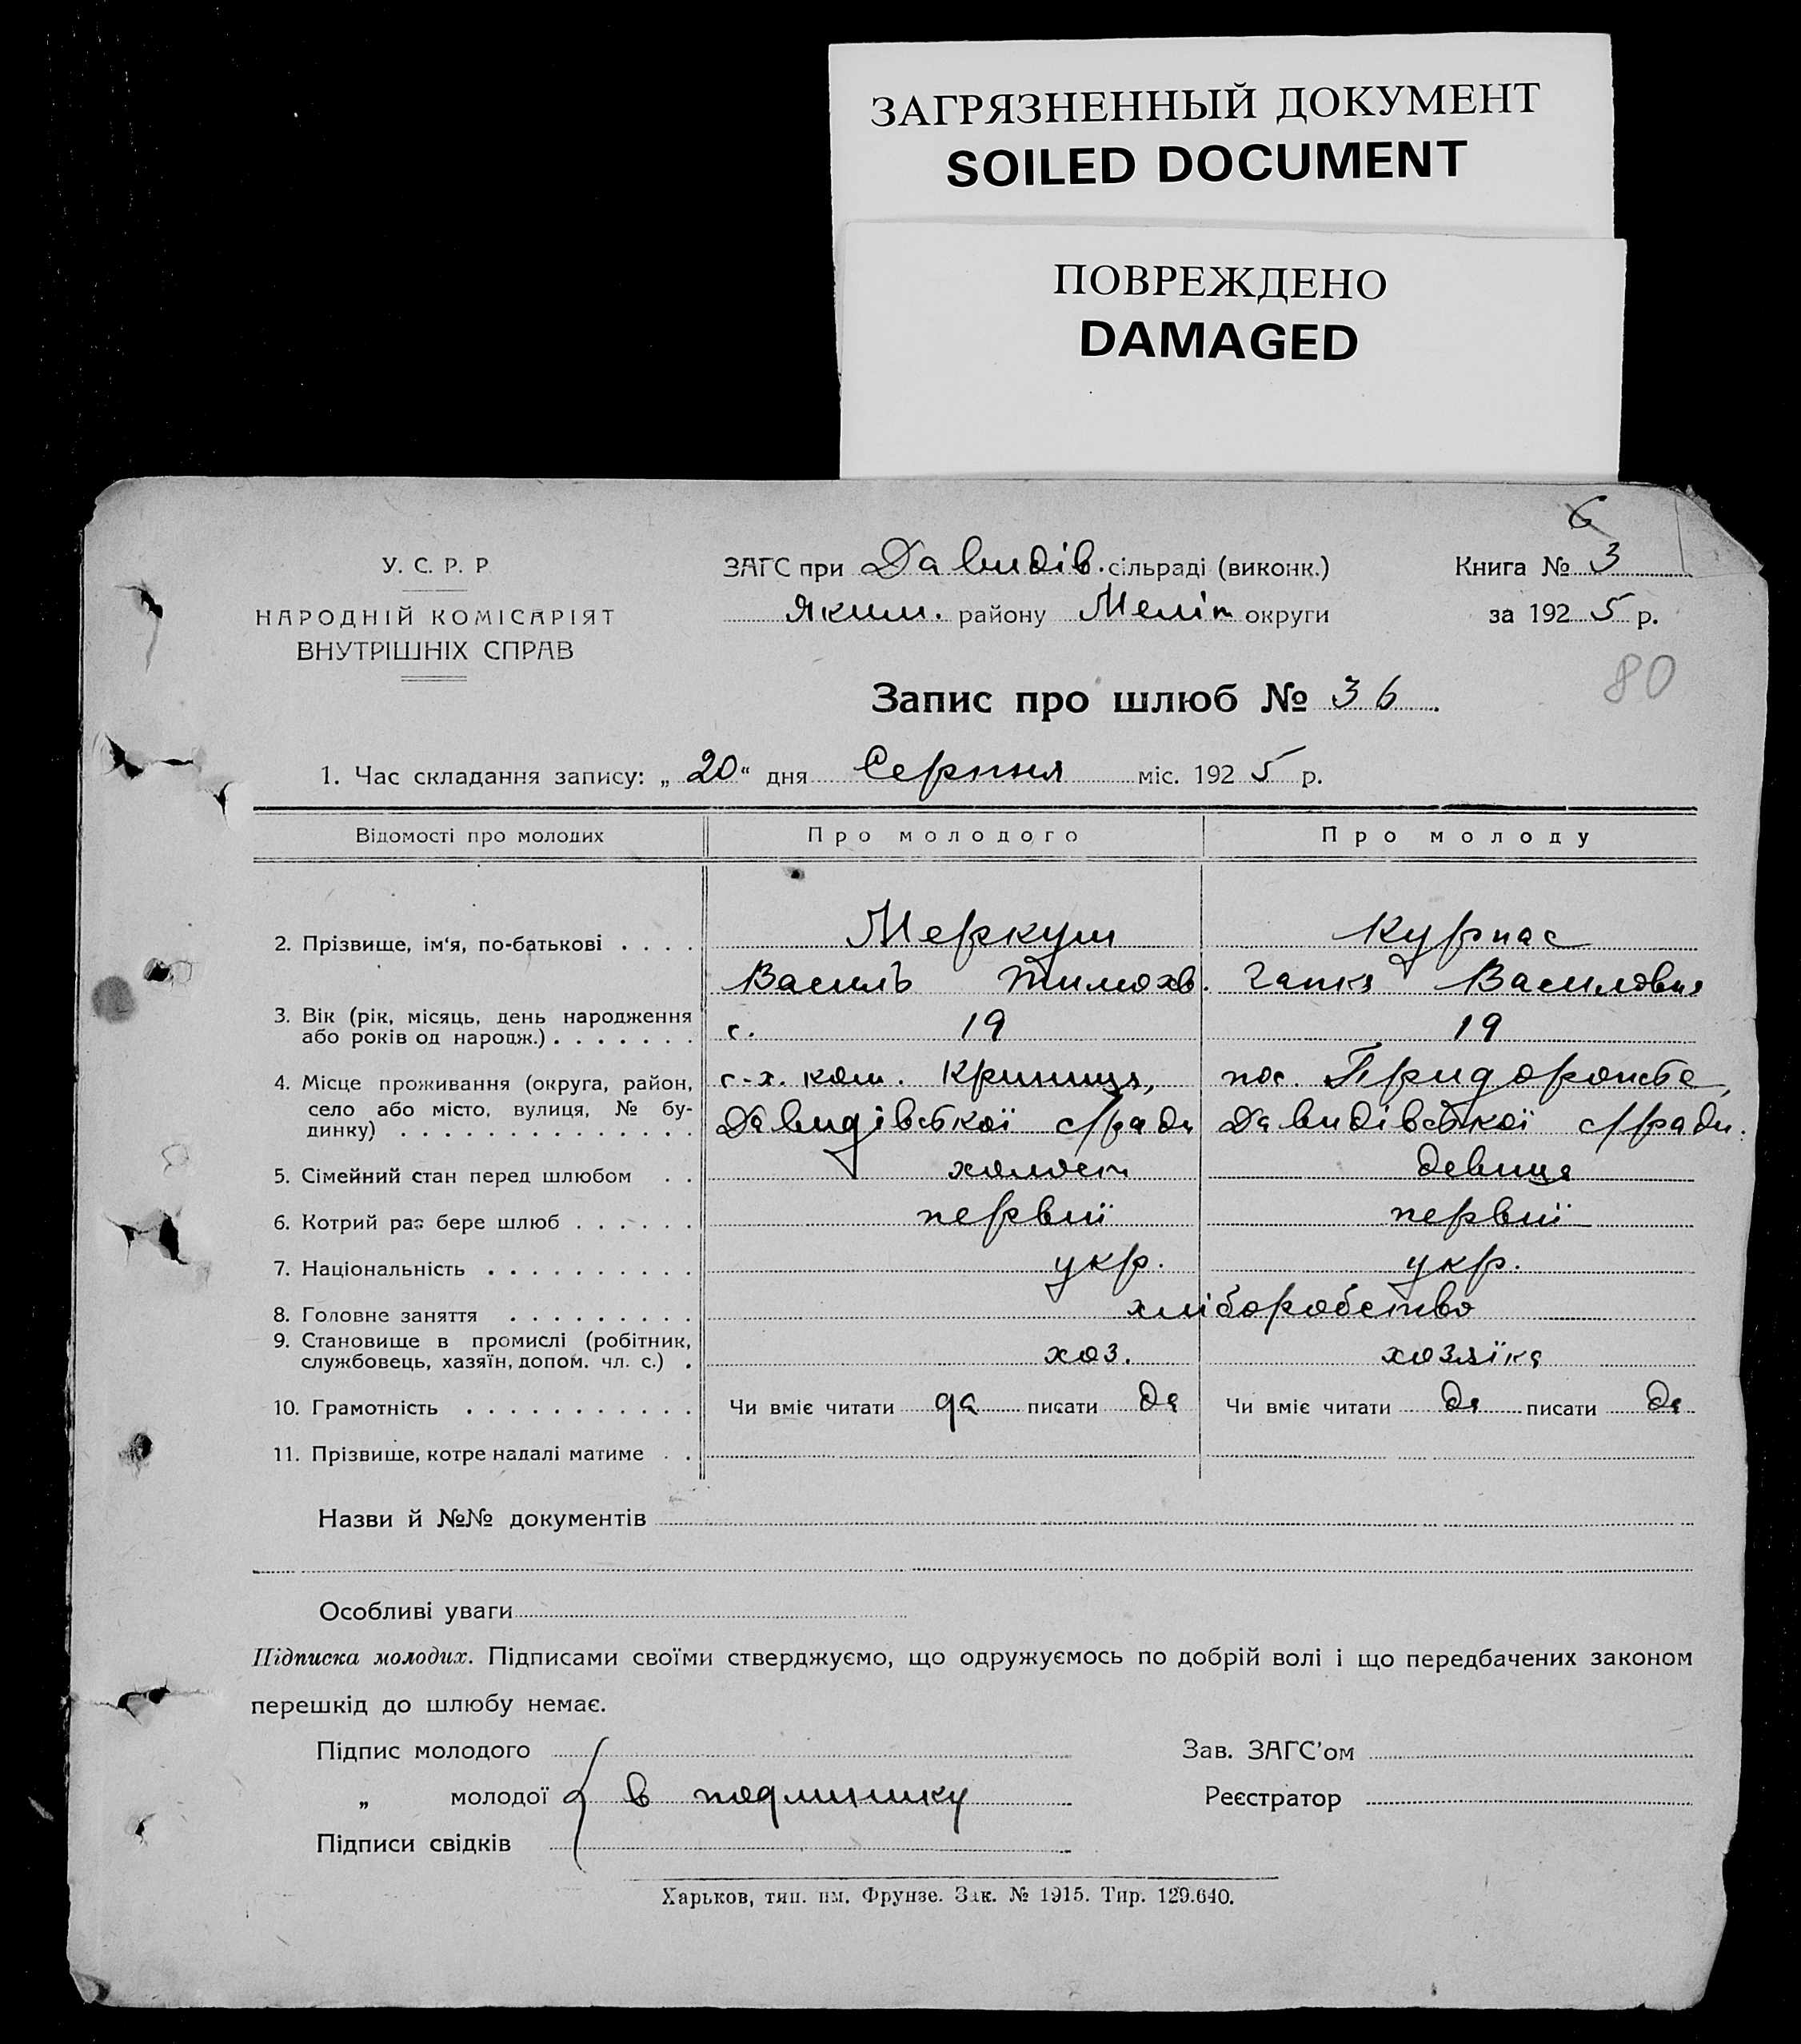 ЗАГРЯЗНЕННЫЙ ДОКУМЕНТ
SOILED DOCUMENT
ПОВРЕЖДЕНО
DAMAGED
6
У. С. Р. Р
НАРОДНІЙ КОМІСАРІЯТ
ВНУТРІШНІХ СПРАВ
ЗАГС при Давидів. сільраді (виконк.)
Яким. району Меліт округи
Книга № 3
за 1925 р.
80
Запис про шлюб № 36.
1. Час складання запису: „20“ дня Серпня міс. 1925 р.
Відомості про молодих Про молодого Про молоду
2. Прізвище, ім'я, по-батькові . . . . Меркуш Курпас
Василь Тимохв. Гапка Василовна
3. Вік (рік, місяць, день народження
або років од народж.) . . . . . . . с. 19 19
4. Місце проживання (округа, район, с-х. ком. Криниця, пос. Придорожнє,
село або місто, вулиця, № бу-
динку) . . . . . . . . . . . . . Давидівської с/ради Давидівської с/ради.
5. Сімейний стан перед шлюбом . . холост девиця
6. Котрий раз бере шлюб . . . . . . первиї первиї
7. Національність . . . . . . . . . . укр. укр.
8. Головне заняття . . . . . . . . . хліборобство
9. Становище в промислі (робітник,
службовець, хазяїн, допом. чл. с.) . хоз. хозяїка
10. Грамотність . . . . . . . . . . . Чи вміє читати да писати да Чи вміє читати да писати да
11. Прізвище, котре надалі матиме . .
Назви й №№ документів
Особливі уваги
Підписка молодих. Підписами своїми стверджуємо, що одружуємось по добрій волі і що передбачених законом
перешкід до шлюбу немає.
Підпис молодого Зав. ЗАГС'ом
„ молодої в подлинику Реєстратор
Підписи свідків
Харьков, тип. им. Фрунзе. Зак. № 1915. Тир. 129.640.